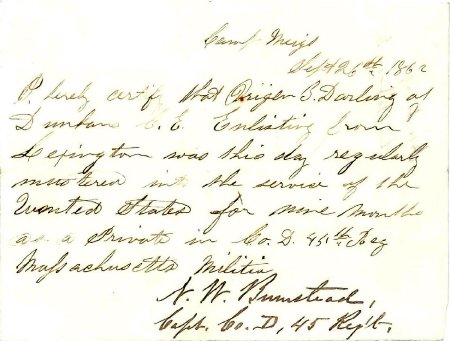 Camp Meigs
Sept 26th 1862
I hereby certify that Origen S. Darling of
Dunham C. E. Enlisting from
Lexington was this day regularly
mustered into the service of the
Uunited States for nine months
as a Private in Co. D. 45th Reg
Massachusetts Militia
N. W. Bumstead,
Capt. Co. D, 45 Regt.